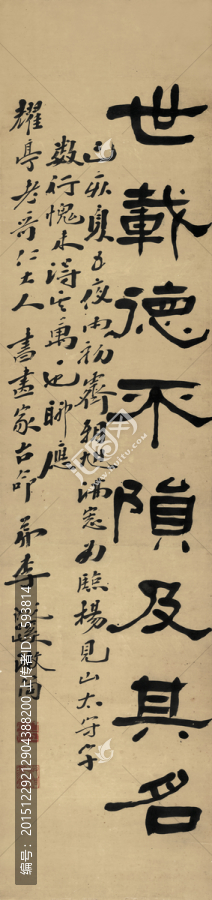 世載德不隕及其名
辛亥夏五夜雨初霽朝旭沸窓為臨楊見山太守字
数行愧未得其萬一也聊應
耀亭老哥仁大人書畫家古命弟李
编号：20151229212904388200 上传者ID:1593814